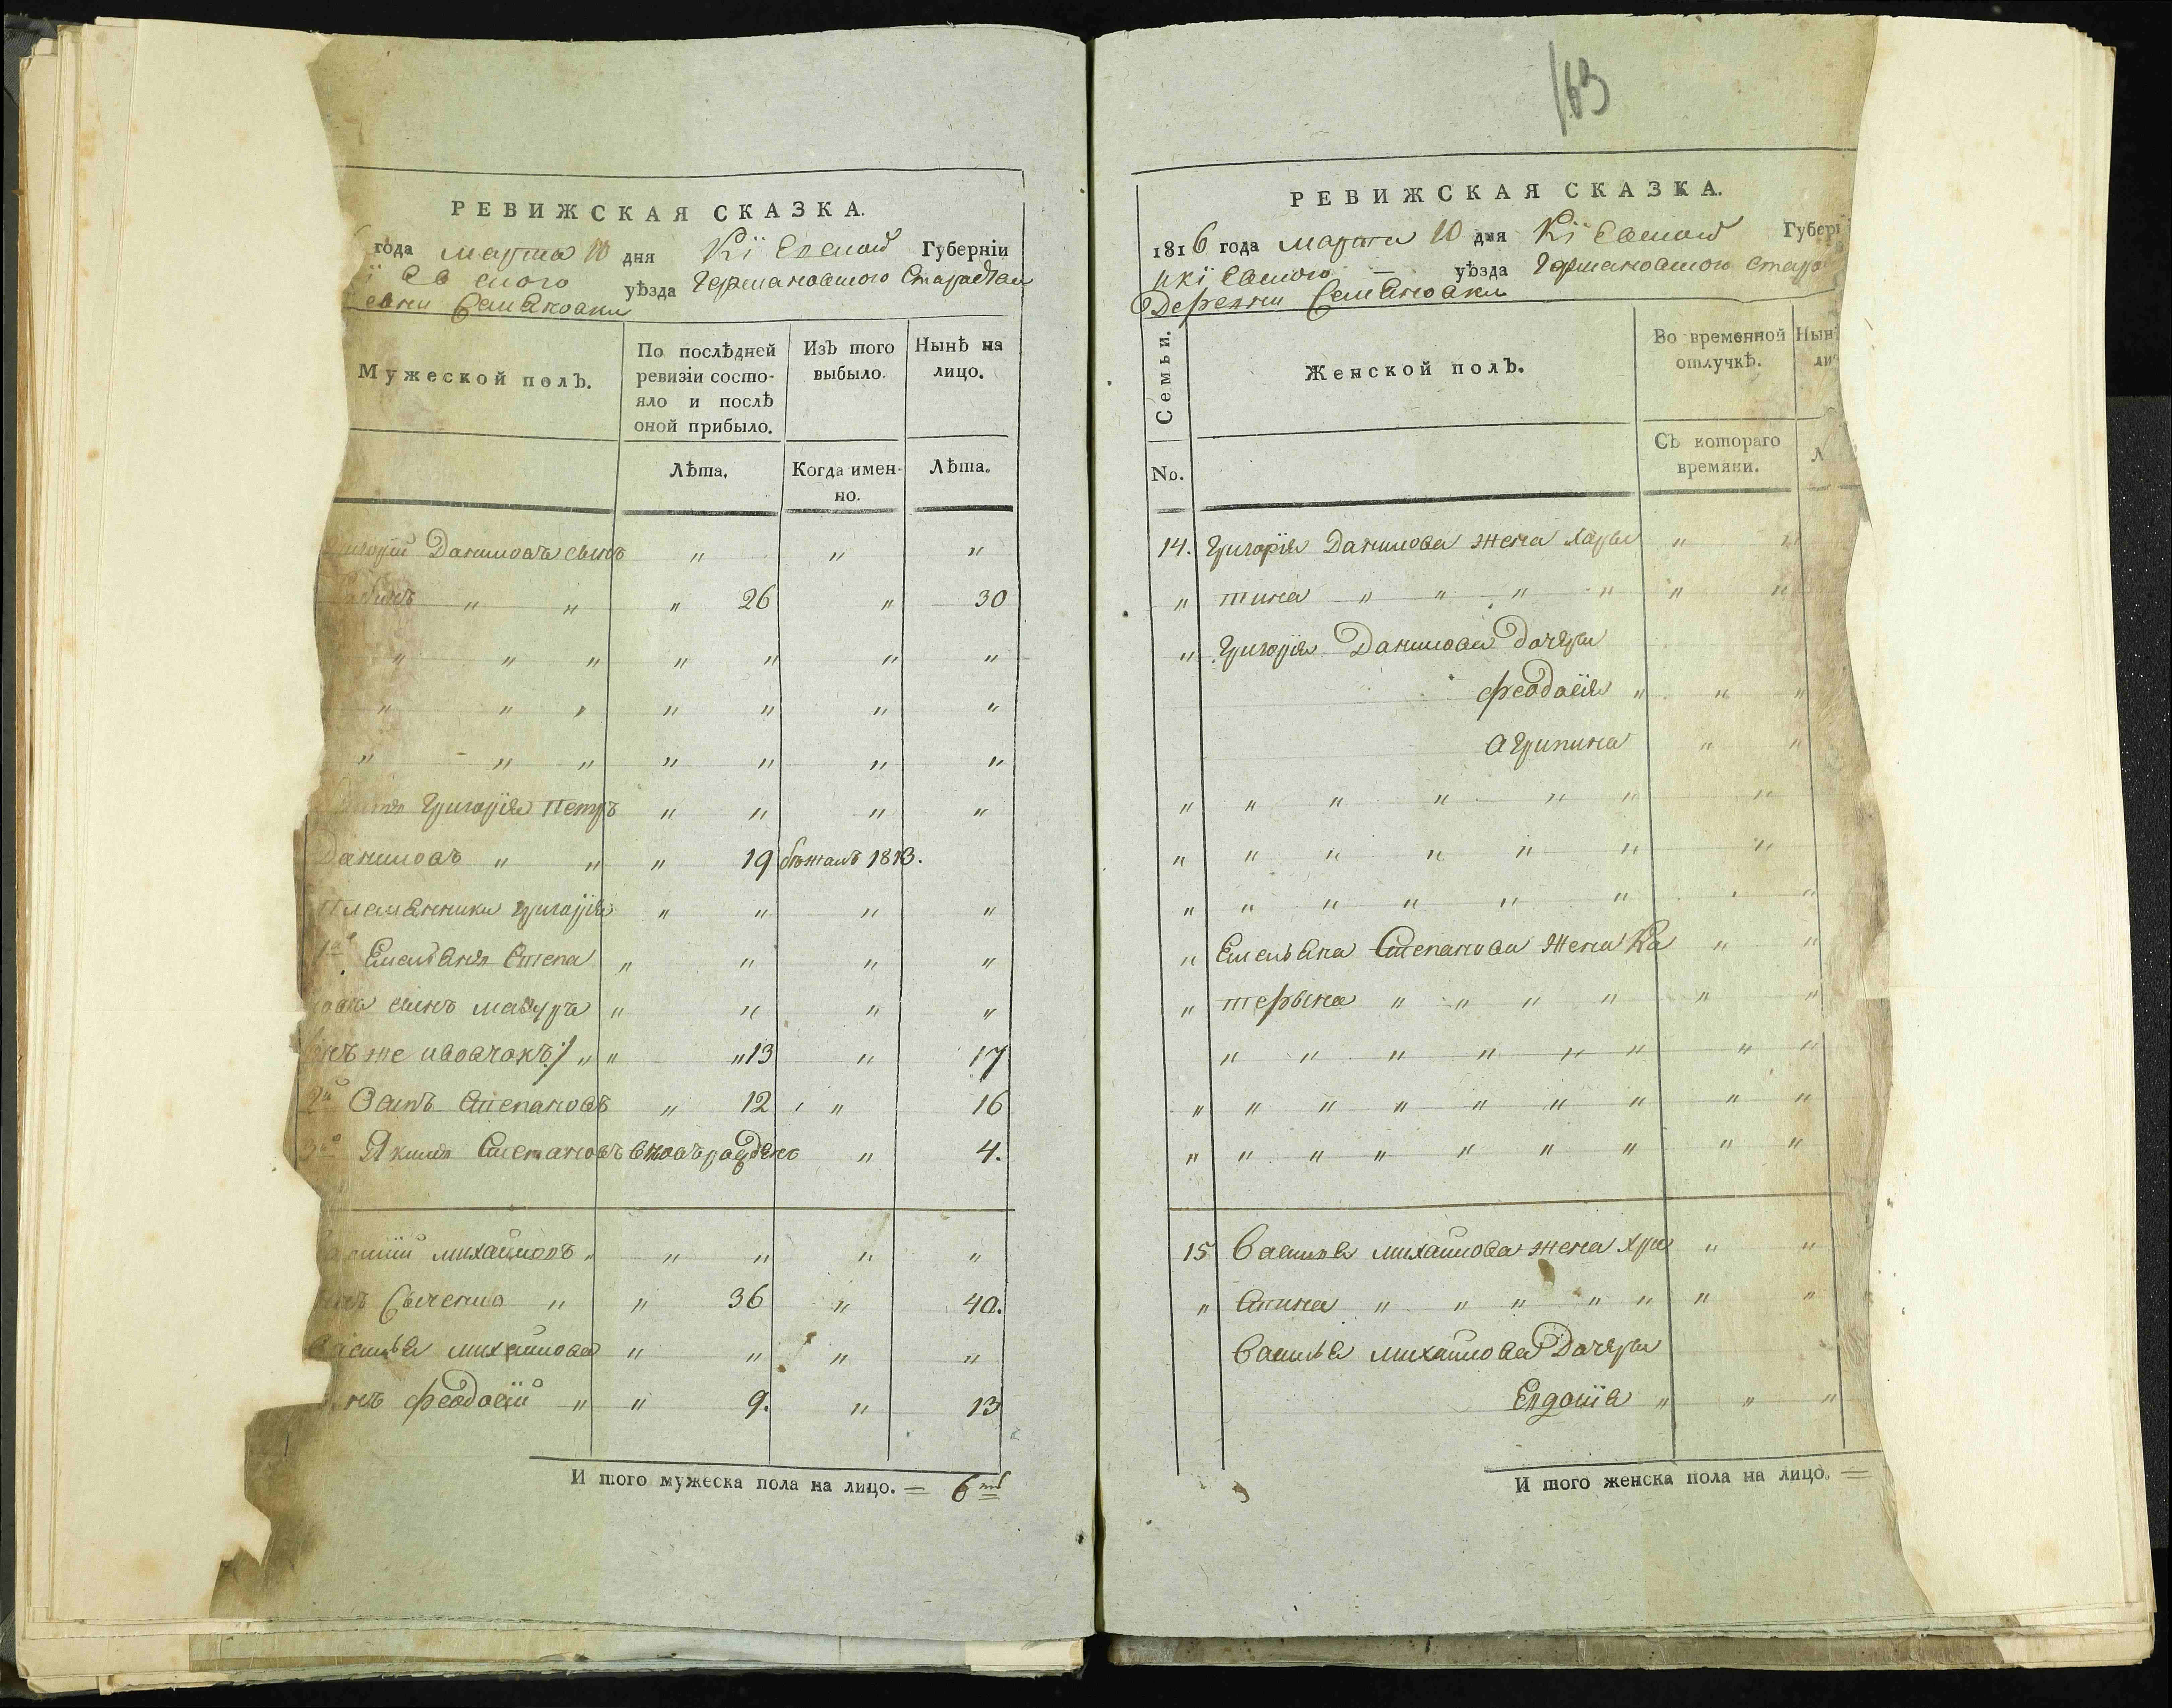 РЕВИЖСКАЯ СКАЗКА.
года марта 10 дня Кїевской Губерніи
їевского уѣзда Германовского Староства
евни Семеновки
Мужеской полъ.
По послѣдней ревизіи состояло и послѣ оной прибыло.
Изъ того выбыло.
Нынѣ на лицо.
Лѣта.
Когда именно.
Лѣта.
Григорій Даниловъ сынъ " " "
" " " 26 " 30
" " " " " " "
" " " " " " "
" " " " " " "
Григорія Петръ " " " "
Даниловъ " " " 19 бѣжалъ 1813.
Племянники Григорія " " " "
1й Емельянъ Степа " " " "
нова сынъ мазуръ " " " "
онъ же ивовчокъ " " " 13 " 17
2й Осипъ Степановъ " 12 " 16
3й Якимъ Степановъ вновьрожденъ " 4.
Василій михайловъ " " " " "
сынъ Сыченко " " 36 " 40.
Василья михайлова " " " "
сынъ феодосїй " " 9. " 13
И того мужеска пола на лицо. = 6ть
163
РЕВИЖСКАЯ СКАЗКА.
1816 года марта 10 дня Кїевской Губері
икїевского — уѣзда Германовского старо
Деревни Семеновки
Семьи.
Женской полъ.
Во временной отлучкѣ.
Нын
ли
No.
Съ котораго времяни.
Л
14. Григорїя Данилова жена хары " "
" тина " " " " " "
" Григорїя Данилова Дочери
феодосїя " " "
агрипина " "
" " " " " " "
" " " " " " "
" " " " " " " "
" Емельяна Степанова жена Ка " "
" терына " " " " " "
" " " " " " " "
" " " " " " " " "
" " " " " " " " "
15 Василья михайлова жена хри " "
" стина " " " " " " "
Василья михайлова Дочери
Евдокїя " " "
И того женска пола на лицо. =